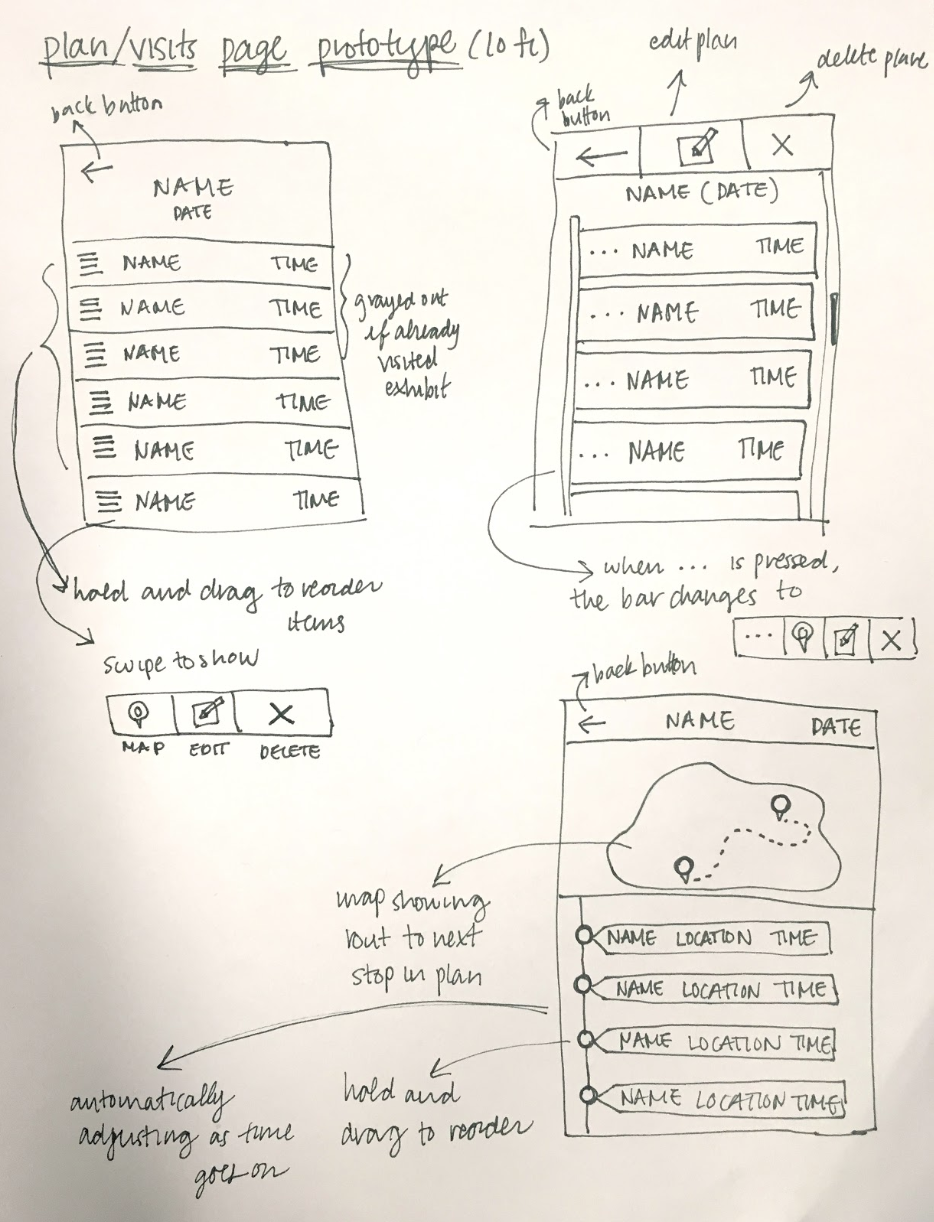 plan/visits page prototype (lo fi)
back button
NAME
DATE
NAME TIME
NAME TIME
NAME TIME
NAME TIME
NAME TIME
NAME TIME
grayed out
if already
visited
exhibit
hold and drag to reorder
items
swipe to show
MAP EDIT DELETE
edit plan
delete plane
back
button
NAME (DATE)
... NAME TIME
... NAME TIME
... NAME TIME
... NAME TIME
when ... is pressed,
the bar changes to
...
back button
NAME DATE
map showing
rout to next
stop in plan
NAME LOCATION TIME
NAME LOCATION TIME
NAME LOCATION TIME
NAME LOCATION TIME
automatically
adjusting as time
goes on
hold and
drag to reorder